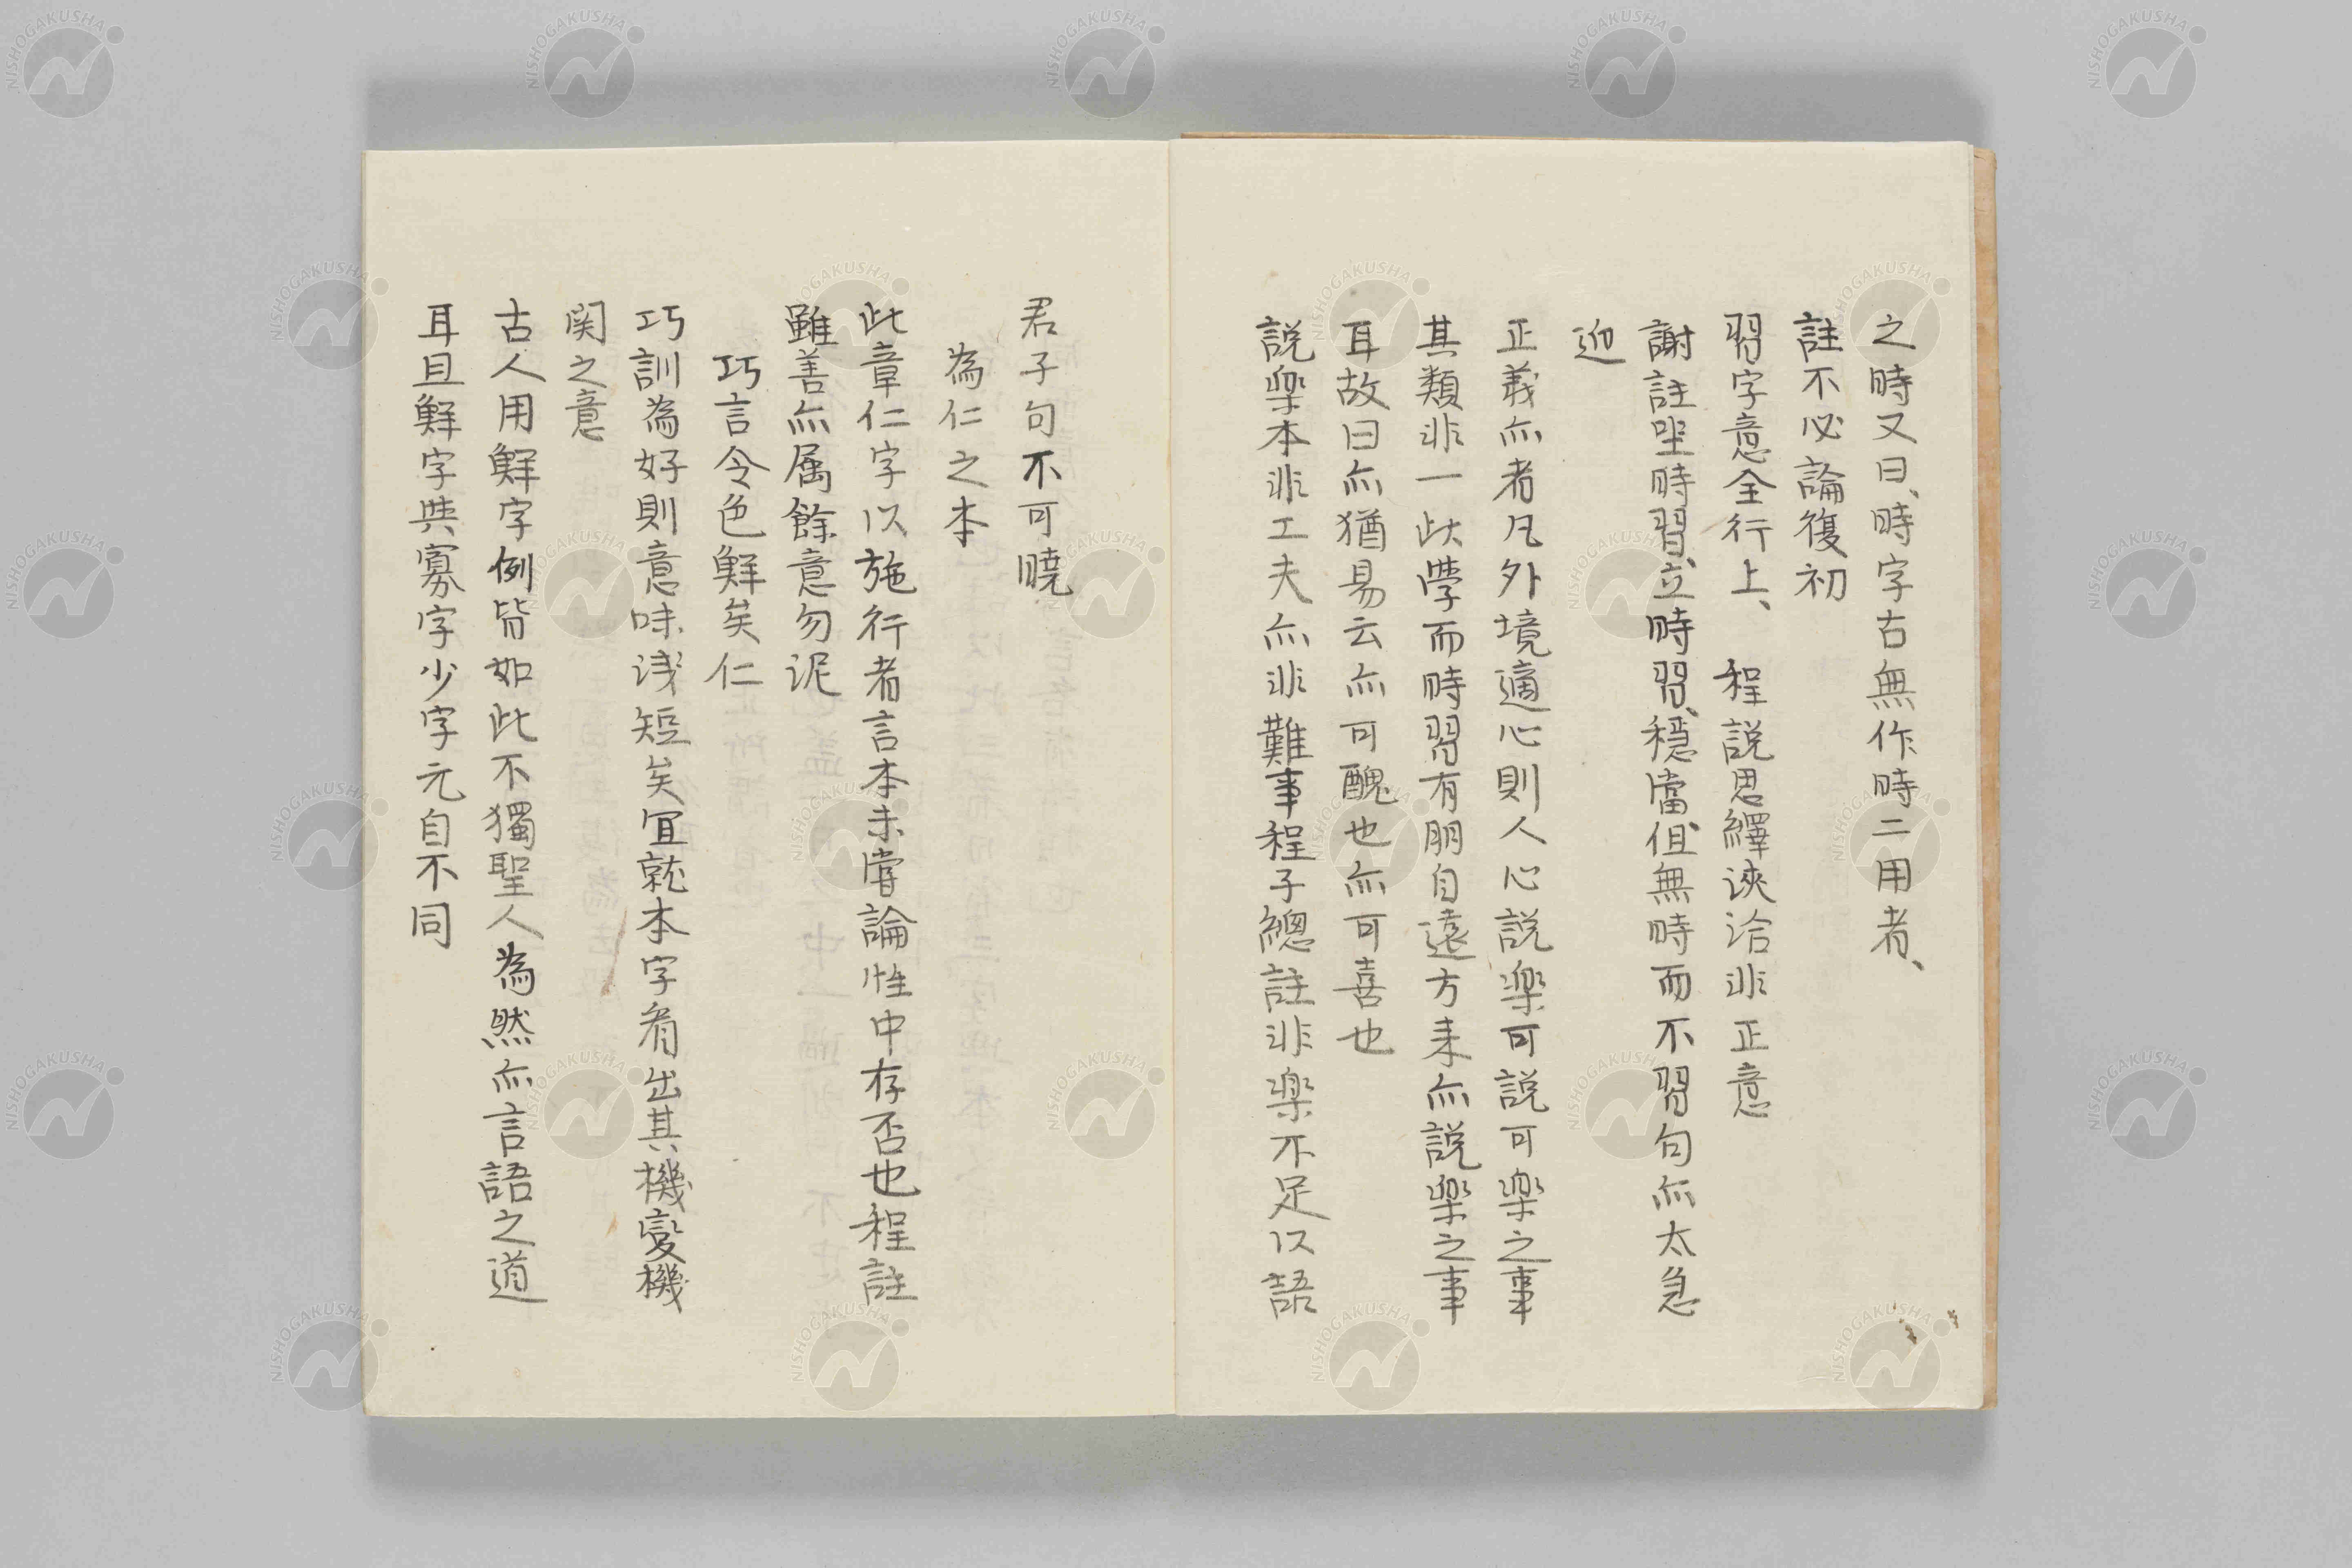 之時又曰、時字古無作時二用者、
註不必論復初
習字意全行上、　程説思繹浹洽非正意
謝註坐時習、立時習、穏當、但無時而不習句亦太急
迎
正義亦者凡外境適心則人心説楽可説可楽之事
其類非一此学而時習有朋自遠方来亦説楽之事
耳故曰亦猶易云亦可醜也亦可喜也
説楽本非工夫亦非難事程子總註非楽不足以語
君子句不可暁
為仁之本
此章仁字以施行者言本未嘗論性中存否也程註
雖善亦属餘意勿泥
巧言令色鮮矣仁
巧訓為好則意味浅短矣宜就本字看出其機變機
関之意
古人用鮮字例皆如此不獨聖人為然亦言語之道
耳且鮮字與寡字少字元自不同
NISHOGAKUSHA